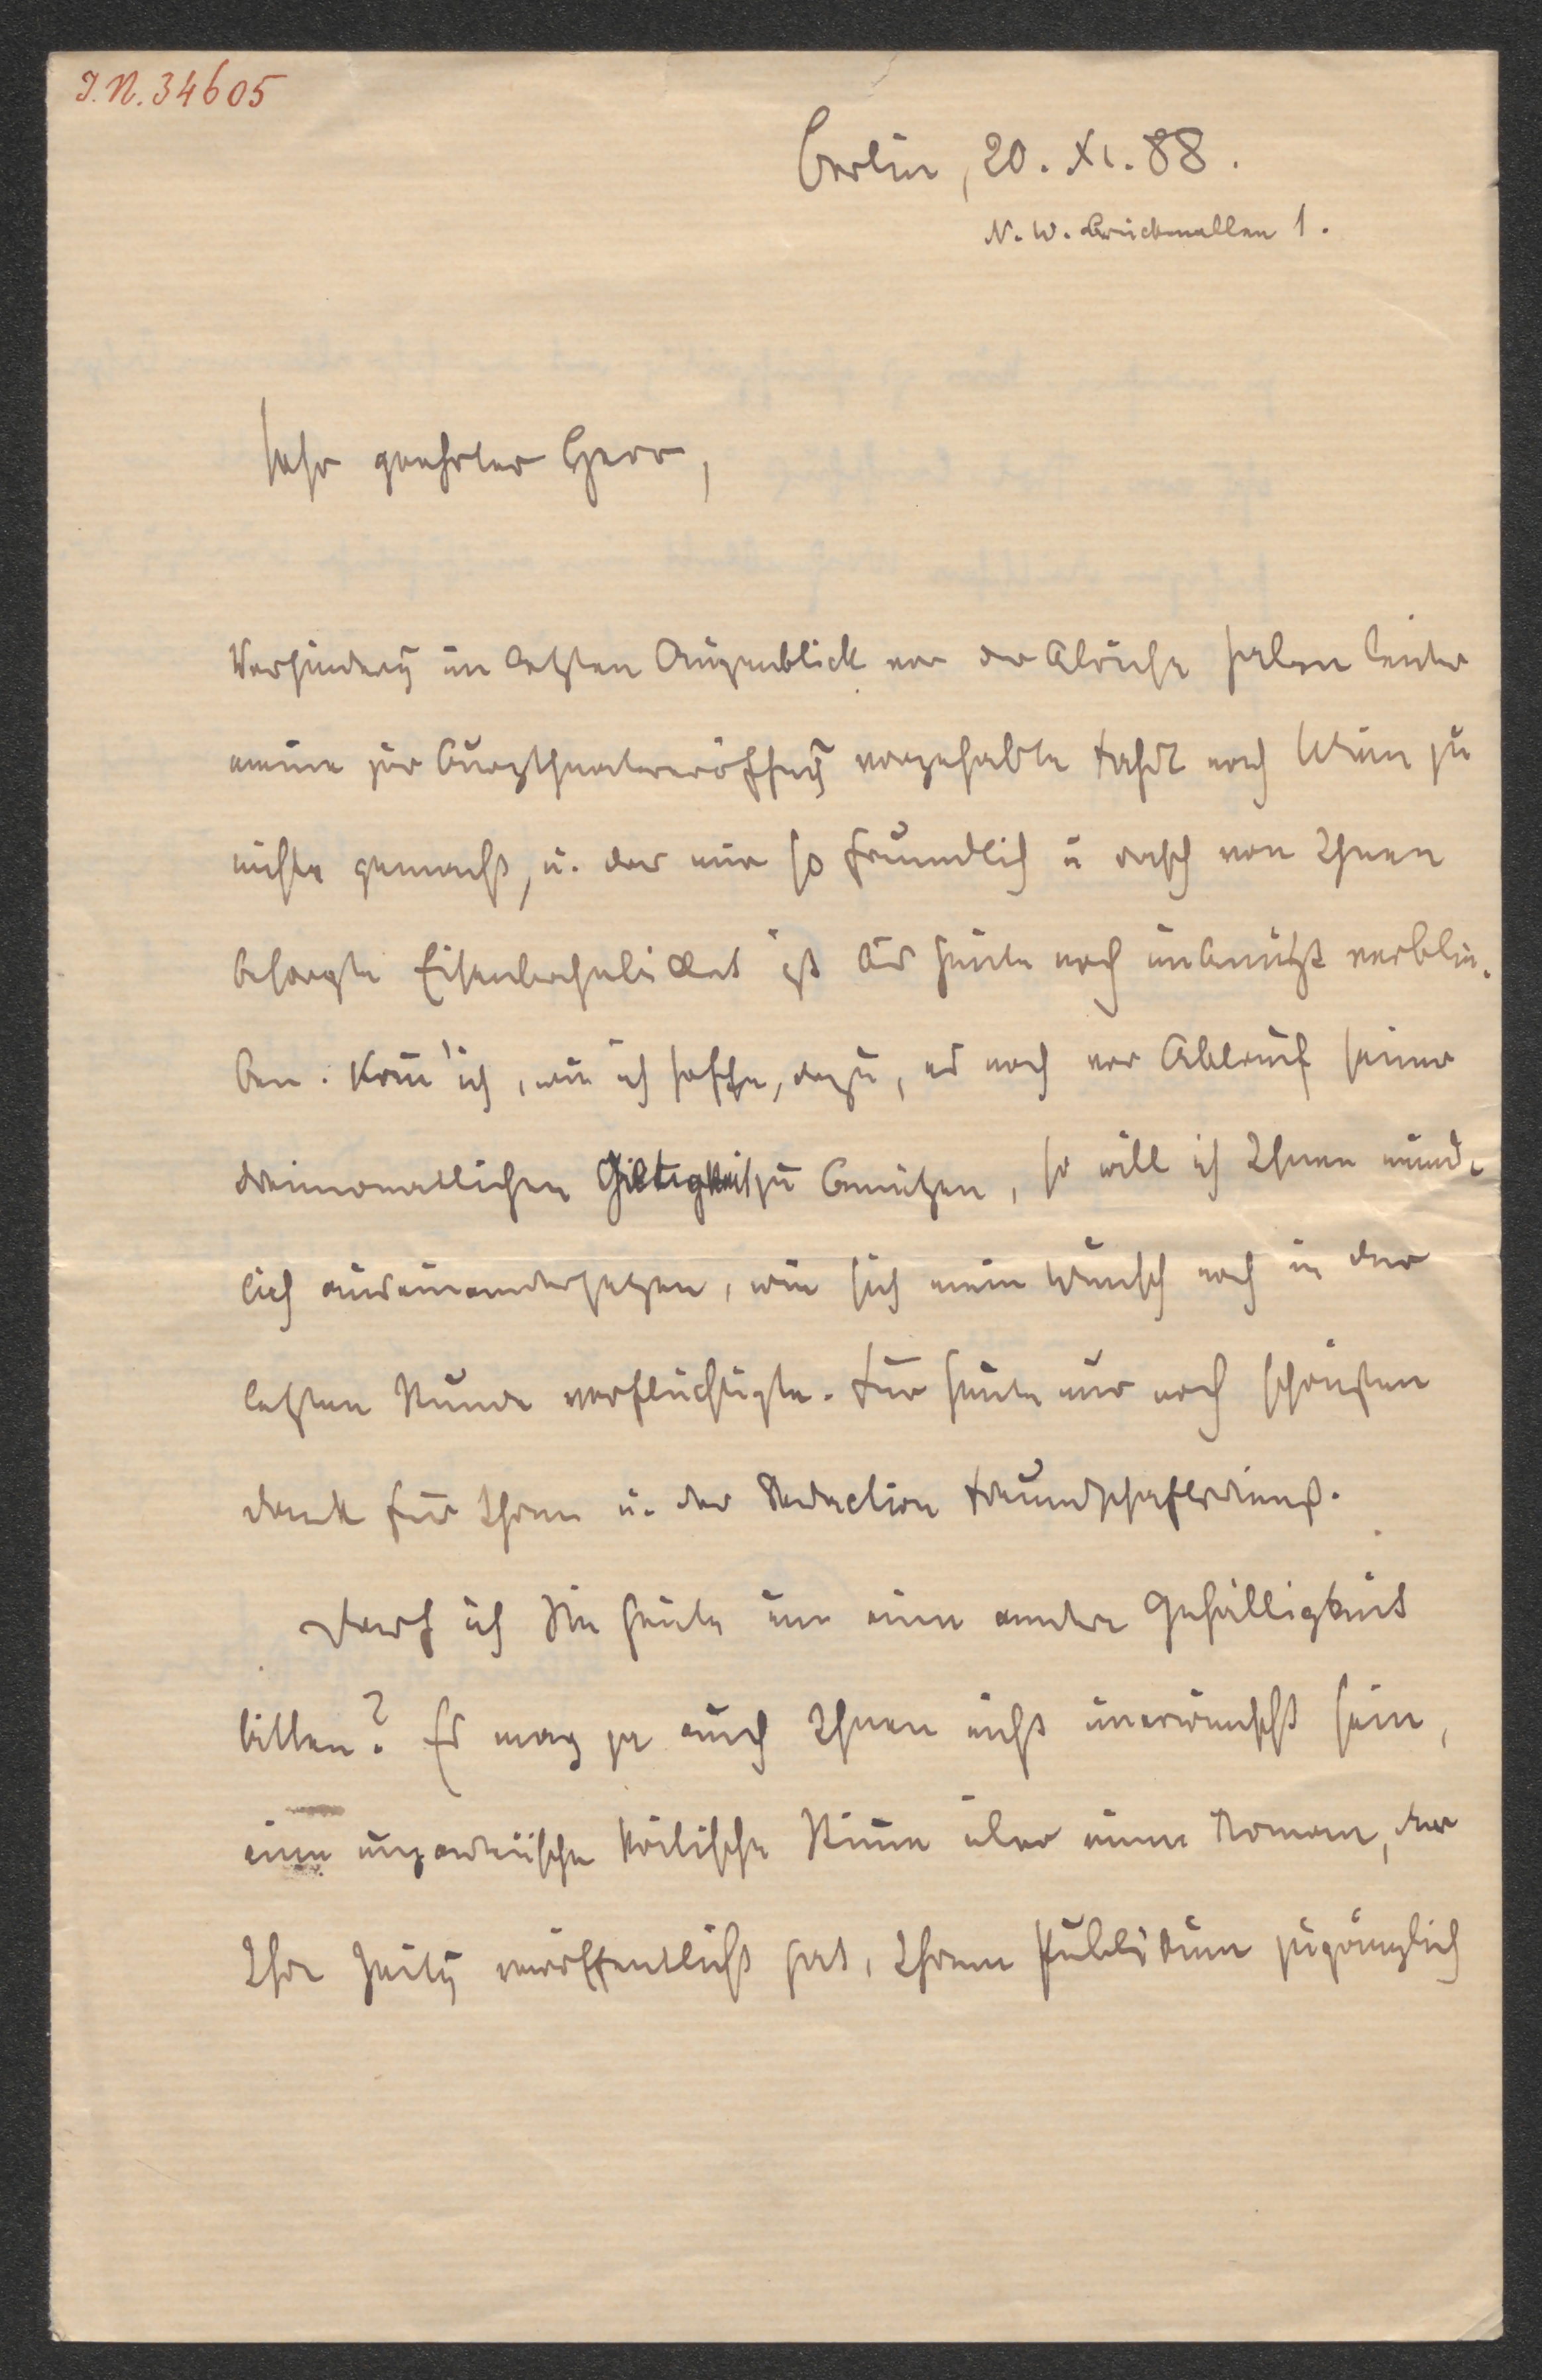 I.N. 34605
Berlin, 20. XI. 88.
N. W. Brückenallee 1.
Sehr geehrter Herr,
Verhinderung im letzten Augenblick vor der Abreise haben leider
meine zur Burgtheatereröffnung vorgehabte Fahrt nach Wien zu
nichte gemacht, u. das mir so freundlich u rasch von Ihnen
besorgte Eisenbahnbillet ist bis heute noch unbenützt verblie-
ben. Kom̄' ich, wie ich hoffe, dazu, es noch vor Ablauf seiner
dreimonatlichen Giltigkeit zu benützen, so will ich Ihnen münd-
lich auseinandersetzen, wie sich mein Wunsch noch in der
letzten Stunde verflüchtigte. Für heute nur noch schönsten
Dank für Ihren u. der Redaction Freundschaftsdienst.
Darf ich Sie heute um eine andere Gefälligkeit
bitten? Es mag ja auch Ihnen nicht unerwünscht sein,
eine kritische Stim̄e über einen Roman, den
Ihre Zeitung veröffentlicht hat, Ihrem Publikum zugänglich